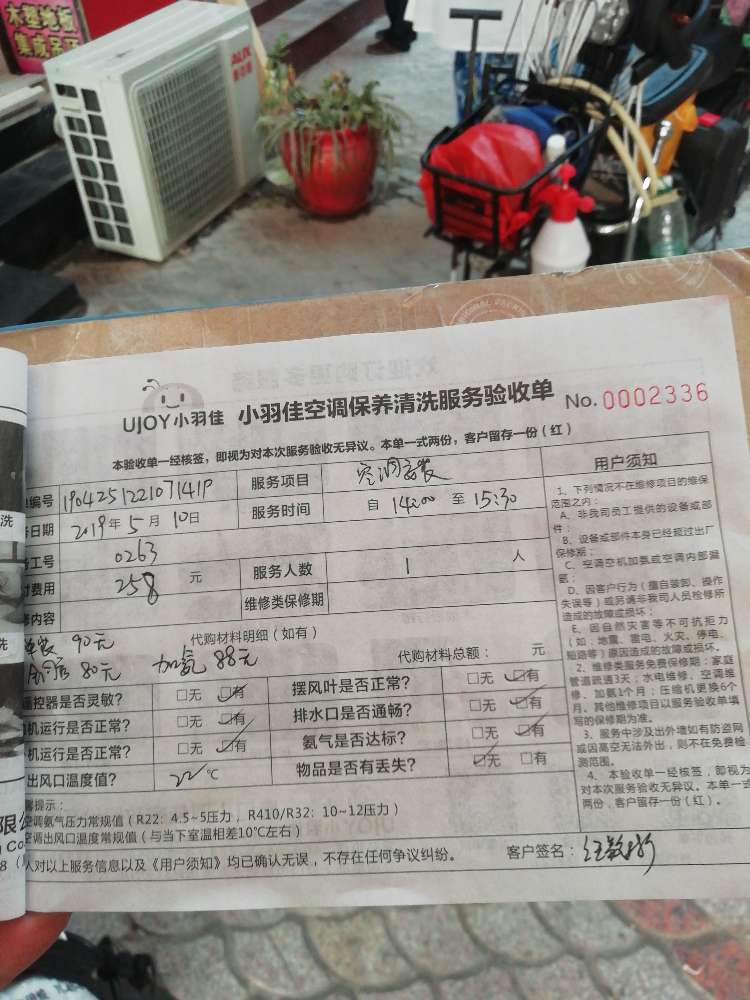 木塑地板
集成吊顶
AUX
UJOY小羽佳 小羽佳空调保养清洗服务验收单 No.0002336
本验收单一经核签，即视为对本次服务验收无异议。本单一式两份，客户留存一份（红）
编号 190425122107141P 服务项目
日期 2019年5月10日 服务时间 自 14:00 至 15:30
工号 0263
费用 258 元 服务人数 1 人
内容 维修类保修期
90元 代购材料明细（如有）
80元 加氨 88元 代购材料总额： 元
控器是否灵敏? 无 有 摆风叶是否正常? 无 有
机运行是否正常? 无 有 排水口是否通畅? 无 有
机运行是否正常? 无 有 氨气是否达标? 无 有
出风口温度值? 22℃ 物品是否有丢失? 无 有
提示：
空调氨气压力常规值（R22：4.5~5压力，R410/R32：10~12压力）
空调出风口温度常规值（与当下室温相差10℃左右）
人对以上服务信息以及《用户须知》均已确认无误，不存在任何争议纠纷。 客户签名：
用户须知
1、下列情况不在维修项目的维保
范围之内：
A、非我司员工提供的设备或部
件；
B、设备或部件本身已经超过出厂
保修期；
C、空调空机加氨或空调内部漏
氨；
D、因客户行为（擅自装卸、操作
失误等）或另请非我司人员检修所
造成的故障或损坏；
E、因自然灾害等不可抗拒力
（如：地震、雷电、火灾、停电、
短路等）原因造成的故障或损坏。
2、维修类服务免费保修期：家庭
管道疏通3天；水电维修、空调维
修、加氨1个月；压缩机更换6个
月。其他维修项目以服务验收单填
写的保修期为准。
3、服务中涉及出外墙如有防盗网
或因高空无法外出，则不在免费检
测范围。
4、本验收单一经核签，即视为
对本次服务验收无异议。本单一式
两份，客户留存一份（红）。